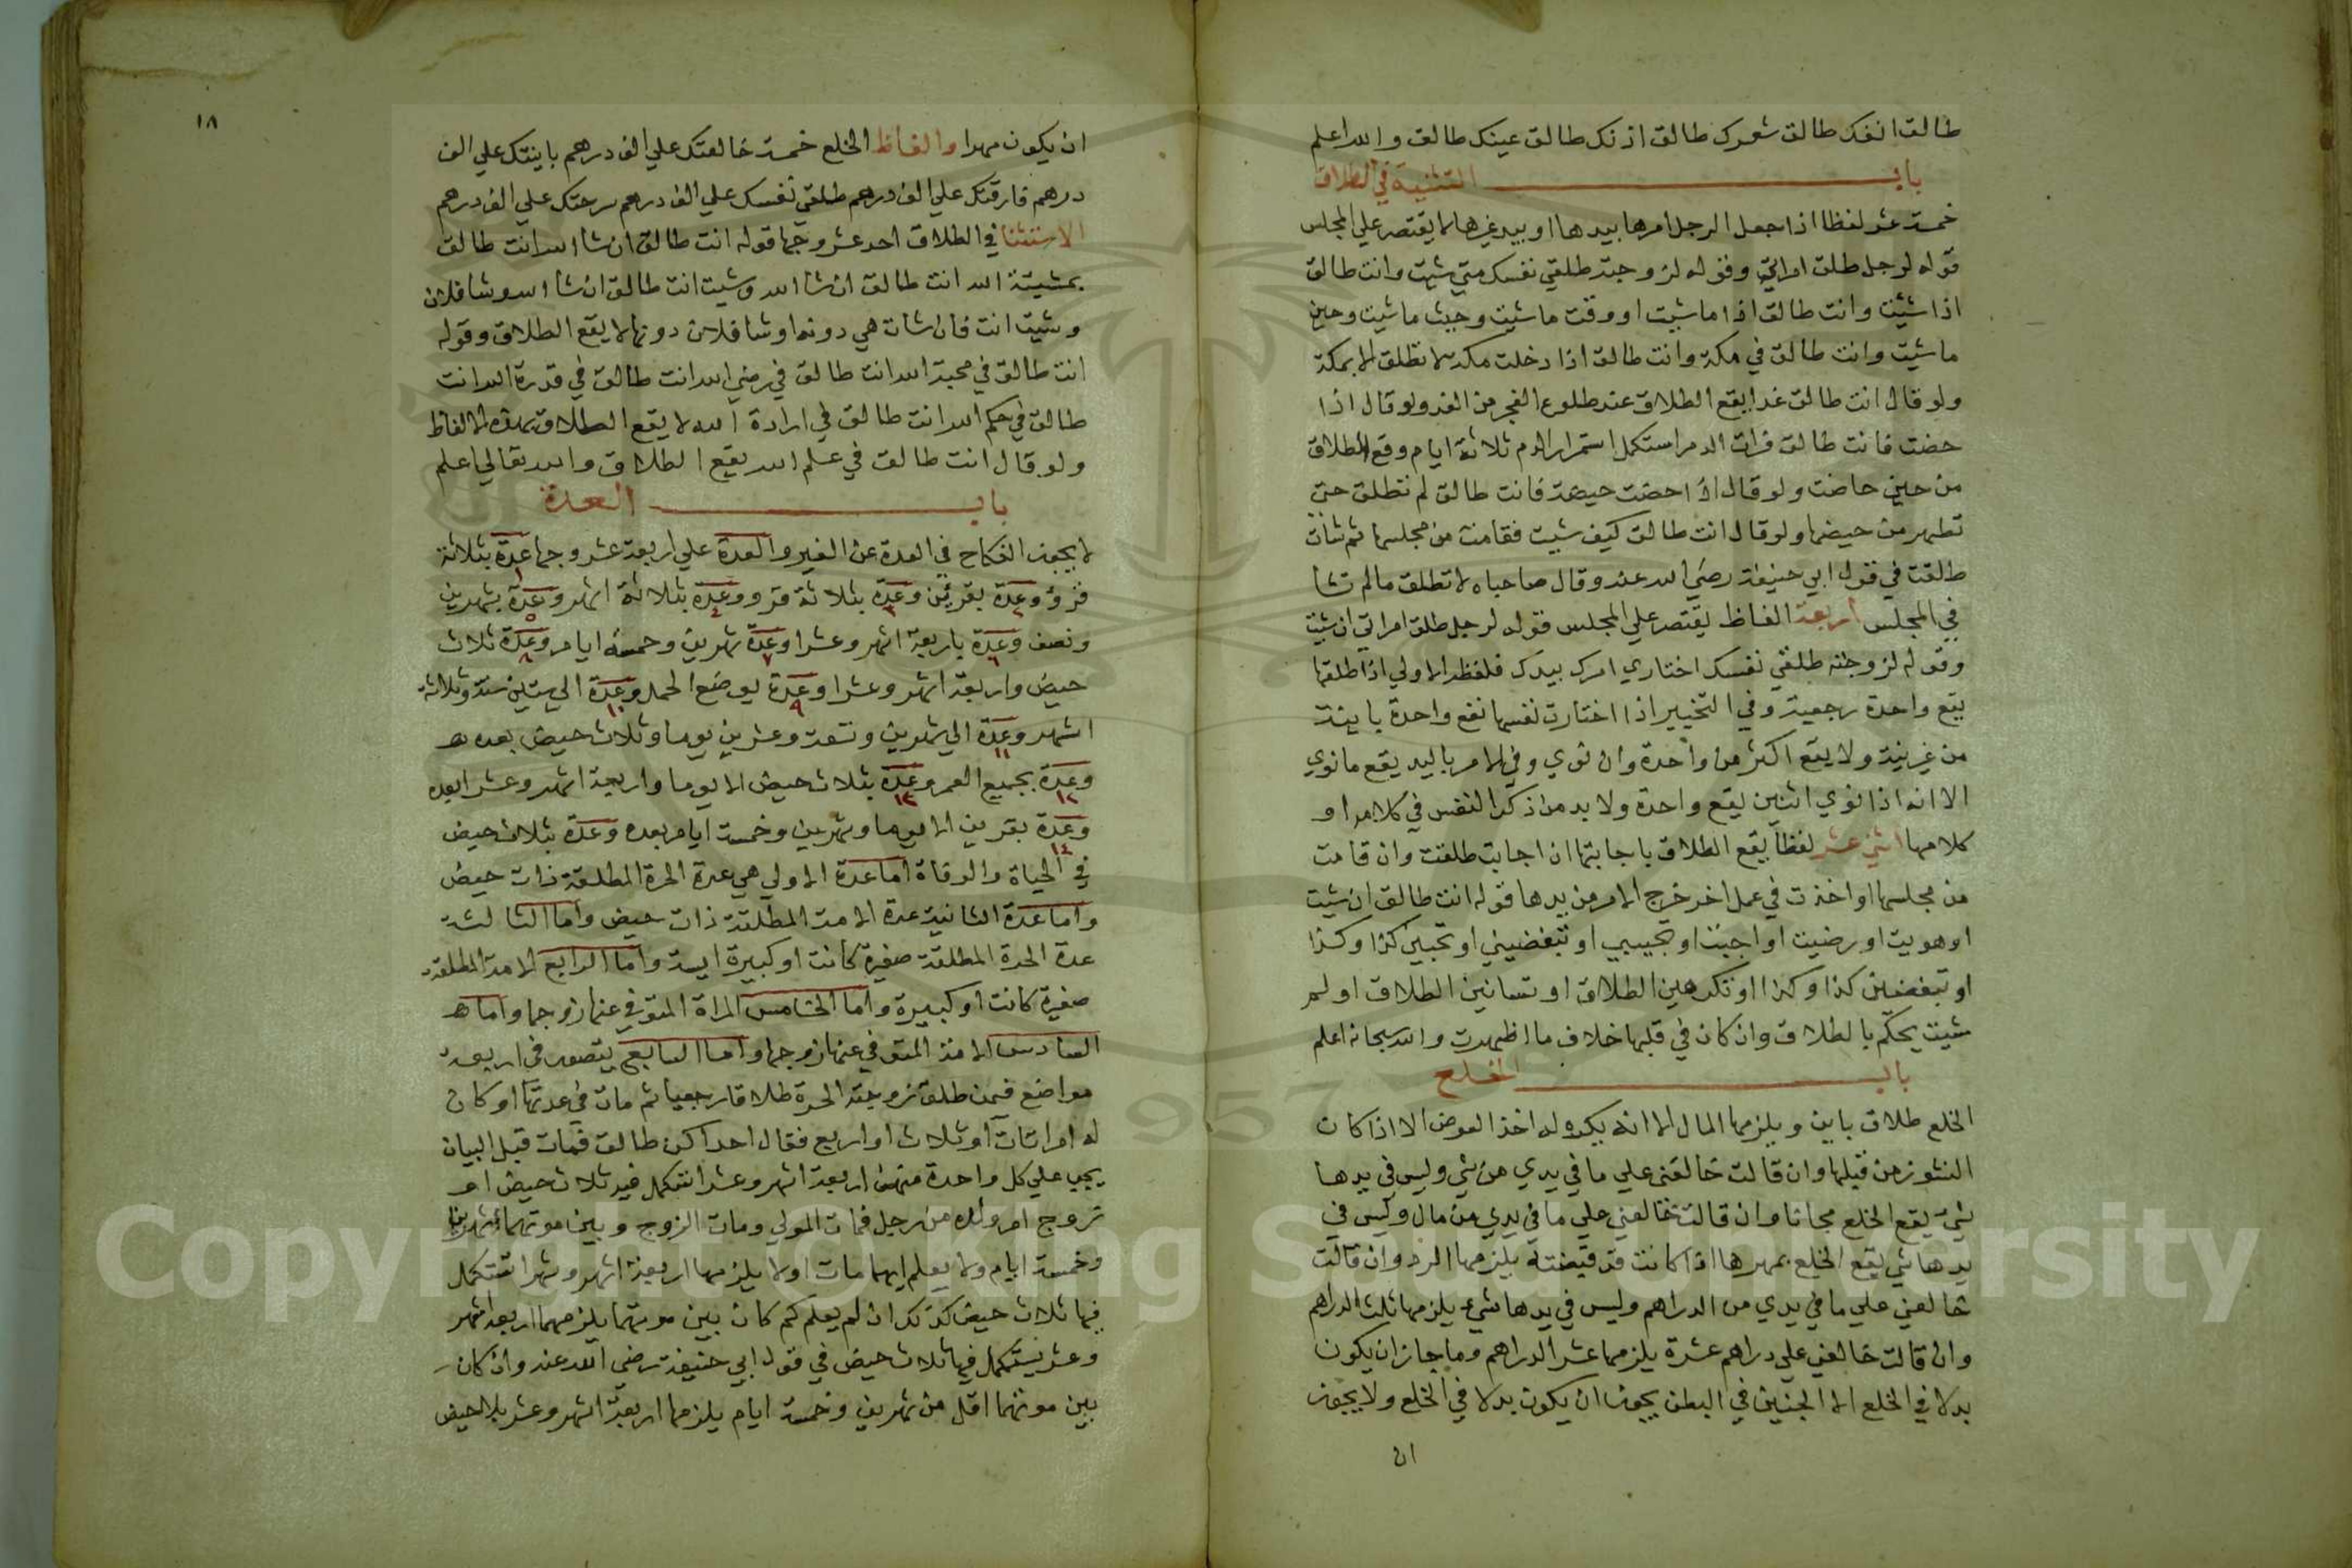 طالق انفك طالق شعرك طالق اذنك طالق عينك طالق والله اعلم
باب التشبيه في الطلاق
خمسة عشر لفظا اذا جعل الرجل امرها بيدها او بيد غيرها لا يقتصر علي المجلس
قوله لرجل طلق امراتي وقوله لزوجته طلقي نفسك متي شيت وانت طالق
اذا شئت وانت طالق اذا ما شيت او وقت ما شيت وحيث ما شيت وحين
ما شيت وانت طالق في مكة وانت طالق اذا دخلت مكة لا تطلق الا بمكة
ولو قال انت طالق غدا يقع الطلاق عند طلوع الفجر من الغد ولو قال اذا
حضت فانت طالق فرات الدم استكمل استمرار الدم ثلاثة ايام وقع الطلاق
من حين حاضت ولو قال اذا حضت حيضة فانت طالق لم تطلق حتي
تطهر من حيضها ولو قال انت طالق كيف شيت فقامت من مجلسها ثم شات
طلقت في قول ابي حنيفة رضي الله عنه وقال صاحباه لا تطلق ما لم تشا
في المجلس اربعة الفاظ يقتصر علي المجلس قوله لرجل طلق امراتي ان شيت
وقوله لزوجته طلقي نفسك اختاري امرك بيدك فلفظه الاولي اذا طلقها
يقع واحدة رجعية وفي التخيير اذا اختارت نفسها تقع واحدة باينة
من غير نية ولا يقع اكثر من واحدة وان نوي وفي الامر باليد يقع ما نوي
الا انه اذا نوي اثنين يقع واحدة ولا بد من ذكر النفس في كلامه او
كلامها اثني عشر لفظا يقع الطلاق باجابتها ان اجابت طلقت وان قامت
من مجلسها او اخذت في عمل اخر خرج الامر من يدها قوله انت طالق ان شيت
او هويت او رضيت او احببت او تحبيني او تبغضيني او تحبين كذا وكذا
او تبغضين كذا وكذا او تكرهين الطلاق او تسانين الطلاق او لم
شيت يحكم بالطلاق وان كان في قلبها خلاف ما اظهرت والله سبحانه اعلم
باب الخلع
الخلع طلاق باين ويلزمها المال الا انه يكره له اخذ العوض الا اذا كان
النشوز من قبلها وان قالت خالعني علي ما في يدي من شي وليس في يدها
شي يقع الخلع مجانا وان قالت خالعني علي ما في يدي من مال وليس في
يدها شي يقع الخلع بمهرها اذا كانت قد قبضته يلزمها الرد وان قالت
خالعني علي ما في يدي من الدراهم وليس في يدها شي يلزمها ثلث الدراهم
وان قالت خالعني علي دراهم عشرة يلزمها عشر الدراهم وما جاز ان يكون
بدلا في الخلع الا الجنين في البطن يجوز ان يكون بدلا في الخلع ولا يجوز
ان
١٨
ان يكون مهرا والفاظ الخلع خمسة خالعتك علي الف درهم باينتك علي الف
درهم فارقتك علي الف درهم طلقي نفسك علي الف درهم سرحتك علي الف درهم
الاستثنا في الطلاق احد عشر وجها قوله انت طالق ان شا الله انت طالق
بمشيئة الله انت طالق ان شا الله وشيت انت طالق ان شا الله وشا فلان
وشيت انت فان شات هي دونه او شا فلان دونها لا يقع الطلاق وقوله
انت طالق في محبة الله انت طالق في رضي الله انت طالق في قدرة الله انت
طالق في حكم الله انت طالق في ارادة الله لا يقع الطلاق بهذه الالفاظ
ولو قال انت طالق في علم الله يقع الطلاق والله تعالي اعلم
باب العدة
لا يجوز النكاح في العدة عن الغير والعدة علي اربعة عشر وجها عدة بثلاثة
قروء وعدة بقرئين وعدة بثلاثة قرو وعدة بثلاثة اشهر وعدة بشهرين
ونصف وعدة باربعة اشهر وعشرا وعدة شهرين وخمسة ايام وعدة ثلاث
حيض واربعة اشهر وعشرا وعدة بوضع الحمل وعدة الي ستين سنة وثلاثة
اشهر وعدة الي شهرين وتسعة وعشرين يوما وثلاث حيض بعده
وعدة بجميع العمر وعدة بثلاث حيض الا يوما واربعة اشهر وعشر ابعده
وعدة بقرين الا يوما وشهرين وخمسة ايام بعده وعدة بثلاث حيض
في الحياة والوفاة اما عدة الاولي هي عدة الحرة المطلقة ذات حيض
واما عدة الثانية عدة الامة المطلقة ذات حيض واما الثالثة
عدة الحرة المطلقة صغيرة كانت او كبيرة ايسة واما الرابع الامة المطلقة
صغيرة كانت او كبيرة واما الخامس المراة المتوفي عنها زوجها واما
السادس الامة المتوفي عنها زوجها واما السابع يتصور في اربعة
مواضع فيمن طلق زوجته الحرة طلاقا رجعيا ثم مات في عدتها او كان
له امراتان او ثلاث او اربع فقال احداكن طالق فمات قبل البيان
يجب علي كل واحدة منهن اربعة اشهر وعشرا تستكمل فيه ثلاث حيض او
تزوج ام ولده من رجل فمات المولي ومات الزوج وبين موتهما شهرين
وخمسة ايام ولا يعلم ايهما مات اولا يلزمها اربعة اشهر وعشرا تستكمل
فيها ثلاث حيض كذلك ان لم يعلم كم كان بين موتهما يلزمهما اربعة اشهر
وعشر يستكمل فيها ثلاث حيض في قول ابي حنيفة رضي الله عنه وان كان
بين موتهما اقل من شهرين وخمسة ايام يلزمها اربعة اشهر وعشر بلا حيض
Copyright © King Saud University
1957